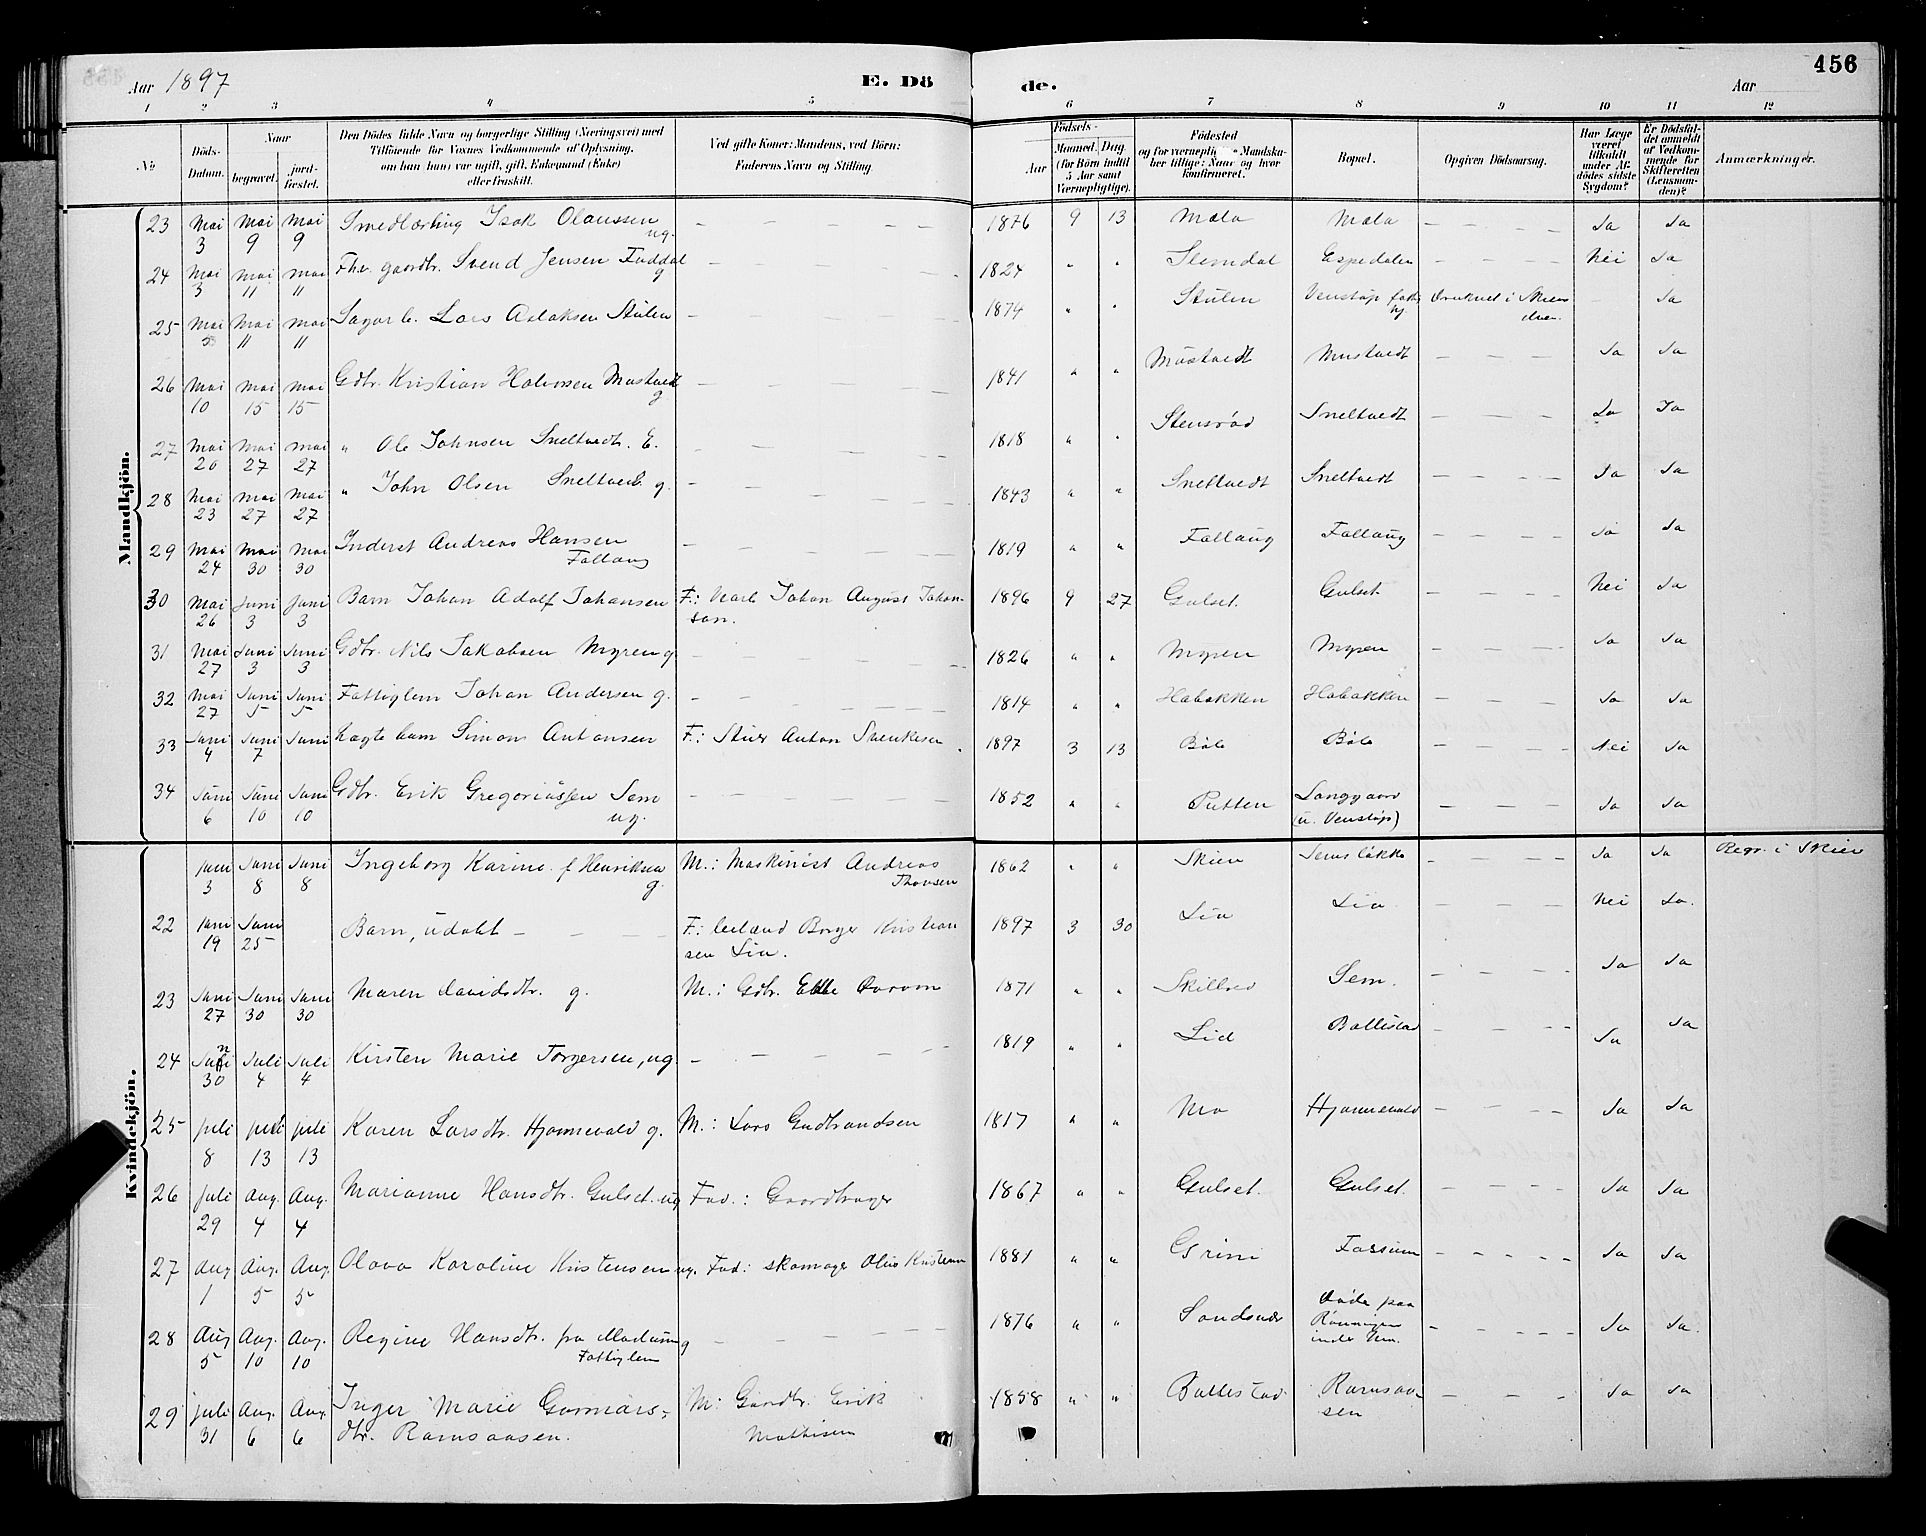 Aar 1897 E. Dö de. Aar 456
1 2 3 4 5 6 7 8 9 10 11 12
No Döds-Datum. Naar begravet. jord-fæstet. Den Dödes fulde Navn og borgerlige Stilling (Næringsvei) med Tilföiende for Voxnes Vedkommende af Oplysning, om han (hun) var ugift, gift, Enkemand (Enke) eller fraskilt. Ved gifte Koner: Mandens, ved Börn: Faderens Navn og Stilling. Födsels- Aar Maaned. Dag (for Börn indtil 5 Aar samt Værnepligtige). Födested og for værnepligtige Mandskaber tillige: Naar og hvor konfirmeret. Bopæl. Opgiven Dödsaarsag. Har Læge været tilkaldt under Afdödes sidste Sygdom? Er Dödsfaldet anmeldt af Vedkommende for Skifteretten (Lensmanden)? Anmærkninger.
Mandkjön.
23 Mai 3 Mai 9 Mai 9 Smedlærling Isak Olaussen ug. — — — — 1876 9 13 Mæla Mæla — — — — Ja Ja
24 Mai 3 Mai 11 Mai 11 Fhv. gaardbr. Svend Jensen g — — — — 1824 " " Slemdal Espedalen — — — — Nei Ja
25 Mai 5 Mai 11 Mai 11 Sagarb. Lars Aslaksen Stulen — — — — 1874 " " Stulen Venstøp Druknet i Skiens — Ja
26 Mai 10 Mai 15 Mai 15 Gdbr. Kristian Halvorsen Mustvedt g — — — — 1841 " " Mustvedt Mustvedt — — — — Ja Ja
27 Mai 20 Mai 27 Mai 27 " Ole Johnsen Sneltvedt. E. — — — — 1818 " " Stensrød Sneltvedt — — — — Ja Ja
28 Mai 23 Mai 27 Mai 27 " John Olsen Sneltvedt g. — — — — 1843 " " Sneltvedt Sneltvedt — — — — Ja Ja
29 Mai 24 Mai 30 Mai 30 Inderst Andreas Hansen Fallaug — — — — 1819 " " Fallaug Fallaug — — — — Ja Ja
30 Mai 26 Juni 3 Juni 3 Barn Johan Adolf Johansen F.: Karl Johan August Johansson. 1896 9 27 Gulset. Gulset — — — — Nei Ja
31 Mai 27 Juni 3 Juni 3 Gdbr. Nils Jakobsen Myren g — — — — 1826 " " Myren Myren — — — — Ja Ja
32 Mai 27 Juni 5 Juni 5 Fattiglem Johan Andersen g. — — — — 1814 " " Habakken Habakken — — — — Ja Ja
33 Juni 4 Juni 7 Juni Uægte barn Simon Antonsen F.: Anton Svenkesen. 1897 3 13 Bøle Bøle — — — — Nei Ja
34 Juni 6 Juni 10 Juni 10 Gdbr. Erik Gregoriussen Sem ug. — — — — 1852 " " Putten Langgaard (u. Venstøp) — — — Ja Ja
Kvindekjön.
Juni 3 Juni 8 Juni 8 Ingeborg Karine f Henriksen g. M.: Maskinist Andreas Thovsen 1862 " " Skien Semsløkka — — — Ja Ja Begr. i Skien
22 Juni 19 Juni 25 Barn, udøbt — — — — F.: Borger Kristiansen Lia. 1897 3 30 Lia Lia — — — — Nei Ja.
23 Juni 27 Juni 30 Juni 30 Maren Davidsdtr. g. M.: Gdbr. 1871 " " Sem. — — — — Ja Ja
24 Juni 30 Juli 4 Juli 4 Kirsten Marie Torgersen, ug. — — — — 1819 " " Lid Ballestad — — — — Ja Ja
25 Juli 8 Juli 13 Juli 13 Karen Larsdtr. Hjønnevald g. M.: Lars Gudbrandsen 1817 " " Mo Hjønnevald — — — — Ja Ja
26 Juli 29 Aug. 4 Aug. 4 Marianne Hansdtr. Gulset ug Fad.: Gaardbruger 1867 " " Gulset. Gulset. — — — — Ja Ja
27 Aug 1 Aug. 5 Aug. 5 Olava Karoline Kristensen ug. Fad: skomager Olius Kristensen 1881 " " Grini Fossum — — — — Ja Ja
28 Aug 5 Aug. 10 Aug. 10 Regine Hansdtr. fra Modum ug Fattiglem — — — — 1876 " " Sandsvær Døde paa Rønningen under — — — — Ja Ja.
29 Juli 31 Aug. 6 Aug 6 Inger Marie Gunnars-
dtr. Ramsaasen. M: Gaardbr. Erik Mathisen 1858 " " Ballestad Ramsaasen — — — Ja Ja